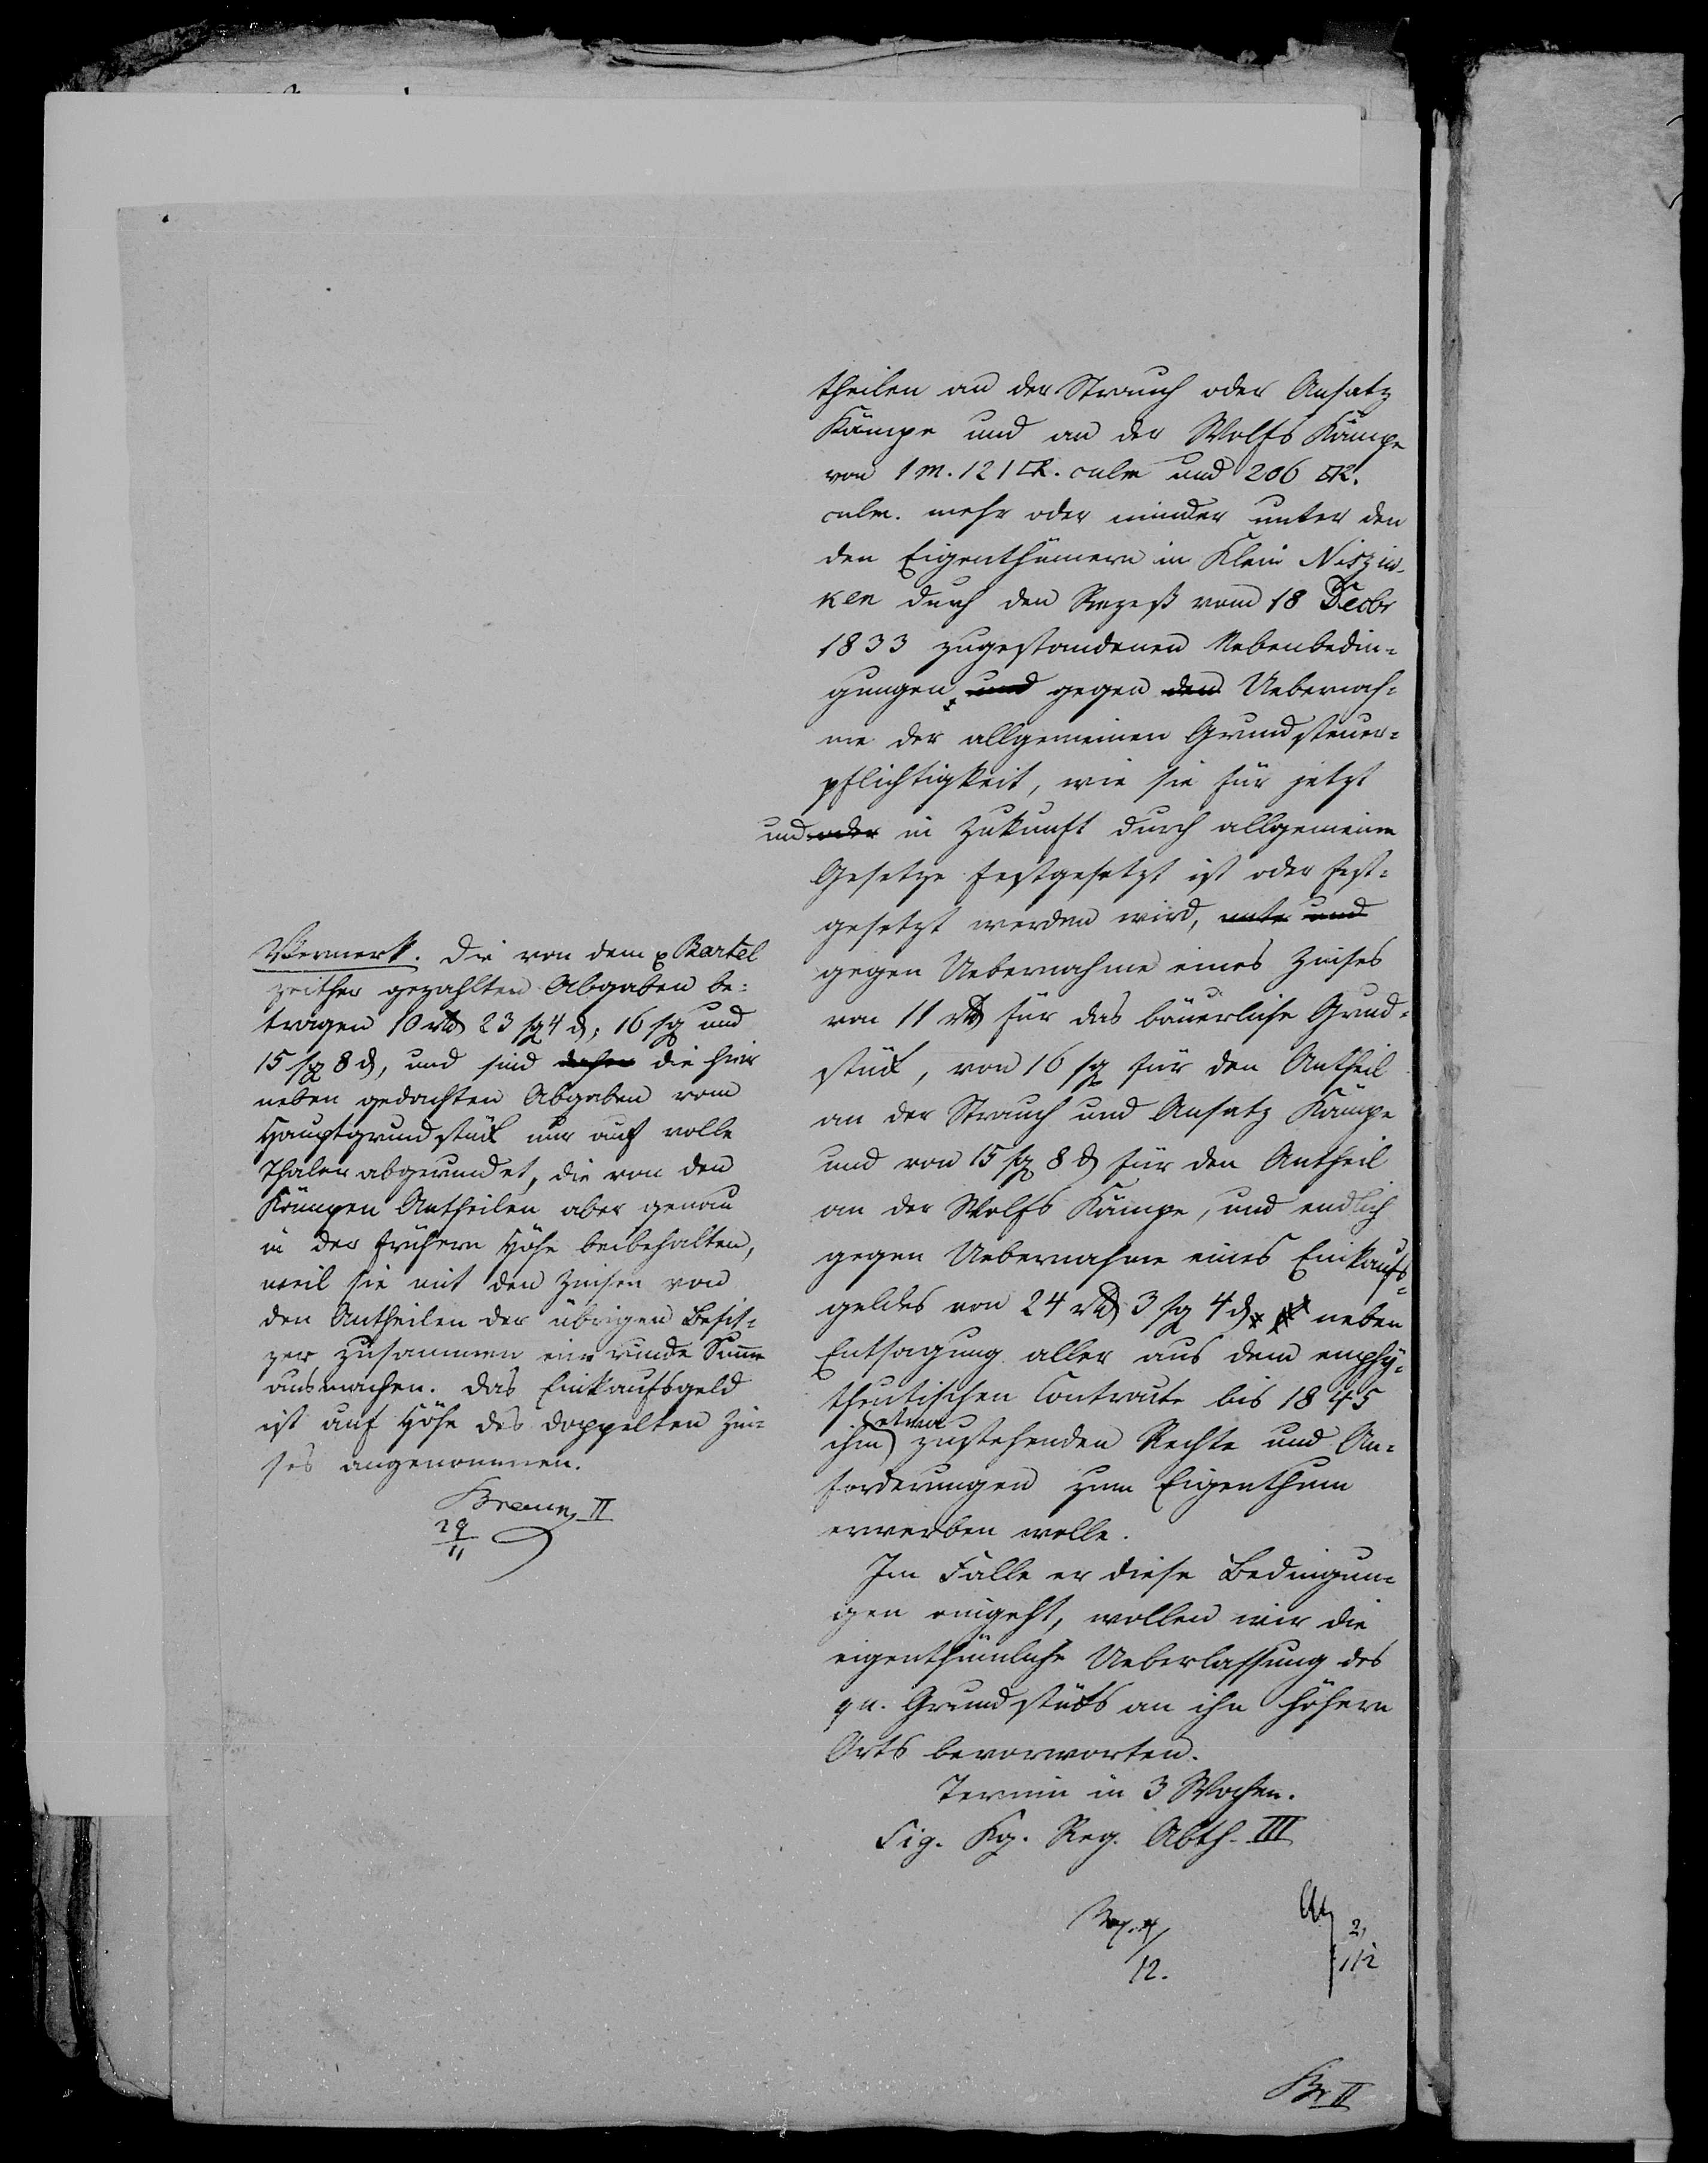 theilen an der Strauch oder Ansatz
Kämpe und an der Wolfs Kämpe
von 1 M. 121 □R. culm und 206 □R.
culm. mehr oder minder unter den
den Eigenthümern in Klein Niszew-
ken durch den Rezeß vom 18 Decbr
1833 zugestandenen Nebenbedin-
gungen, und gegen den Uebernah-
me der allgemeinen Grundsteuer-
pflichtigkeit, wie sie für jetzt
und oder in Zukunft durch allgemeine
Gesetze festgesetzt ist oder fest-
gesetzt werden wird, unter und
gegen Uebernahme eines Zinses
von 11 rtl für das bäuerliche Grund-
stück, von 16 sg für den Antheil
an der Strauch und Ansatz Kämpe
und von 15 sg 8 d für den Antheil
an der Wolfs Kämpe, und endlich
gegen Uebernahme eines Einkaufs-
geldes von 24 rtl 3 sg 4 d neben
Entsagung aller aus dem emphy-
theutischen Contracte bis 1845
ihm etwa zustehenden Rechte und An-
forderungen zum Eigenthum
erwerben wolle.
Im Falle er diese Bedingun-
gen eingeht, wollen wir die
eigenthümliche Ueberlassung des
qu. Grundstücks an ihn höhern
Orts bevorworten.
Termin in 3 Wochen.
Sig. Kg. Reg. Abth. III
12.
2
12
Br II
Vermerk. Die von dem p Bartel
zeither gezahlten Abgaben be-
tragen 10 rtl 23 sg 4 d, 16 sg und
15 sg 8 d, und sind daher die hier
neben gedachten Abgaben vom
Hauptgrundstück nur auf volle
Thaler abgerundet, die von den
Kämpen Antheilen aber genau
in der frühern Höhe beibehalten,
weil sie mit den Zinsen von
den Antheilen der übrigen Besit-
zer zusammen eine runde Summe
ausmachen. Das Einkaufsgeld
ist auf Höhe des doppelten Zin-
ses angenommen.
Braun II
29
11